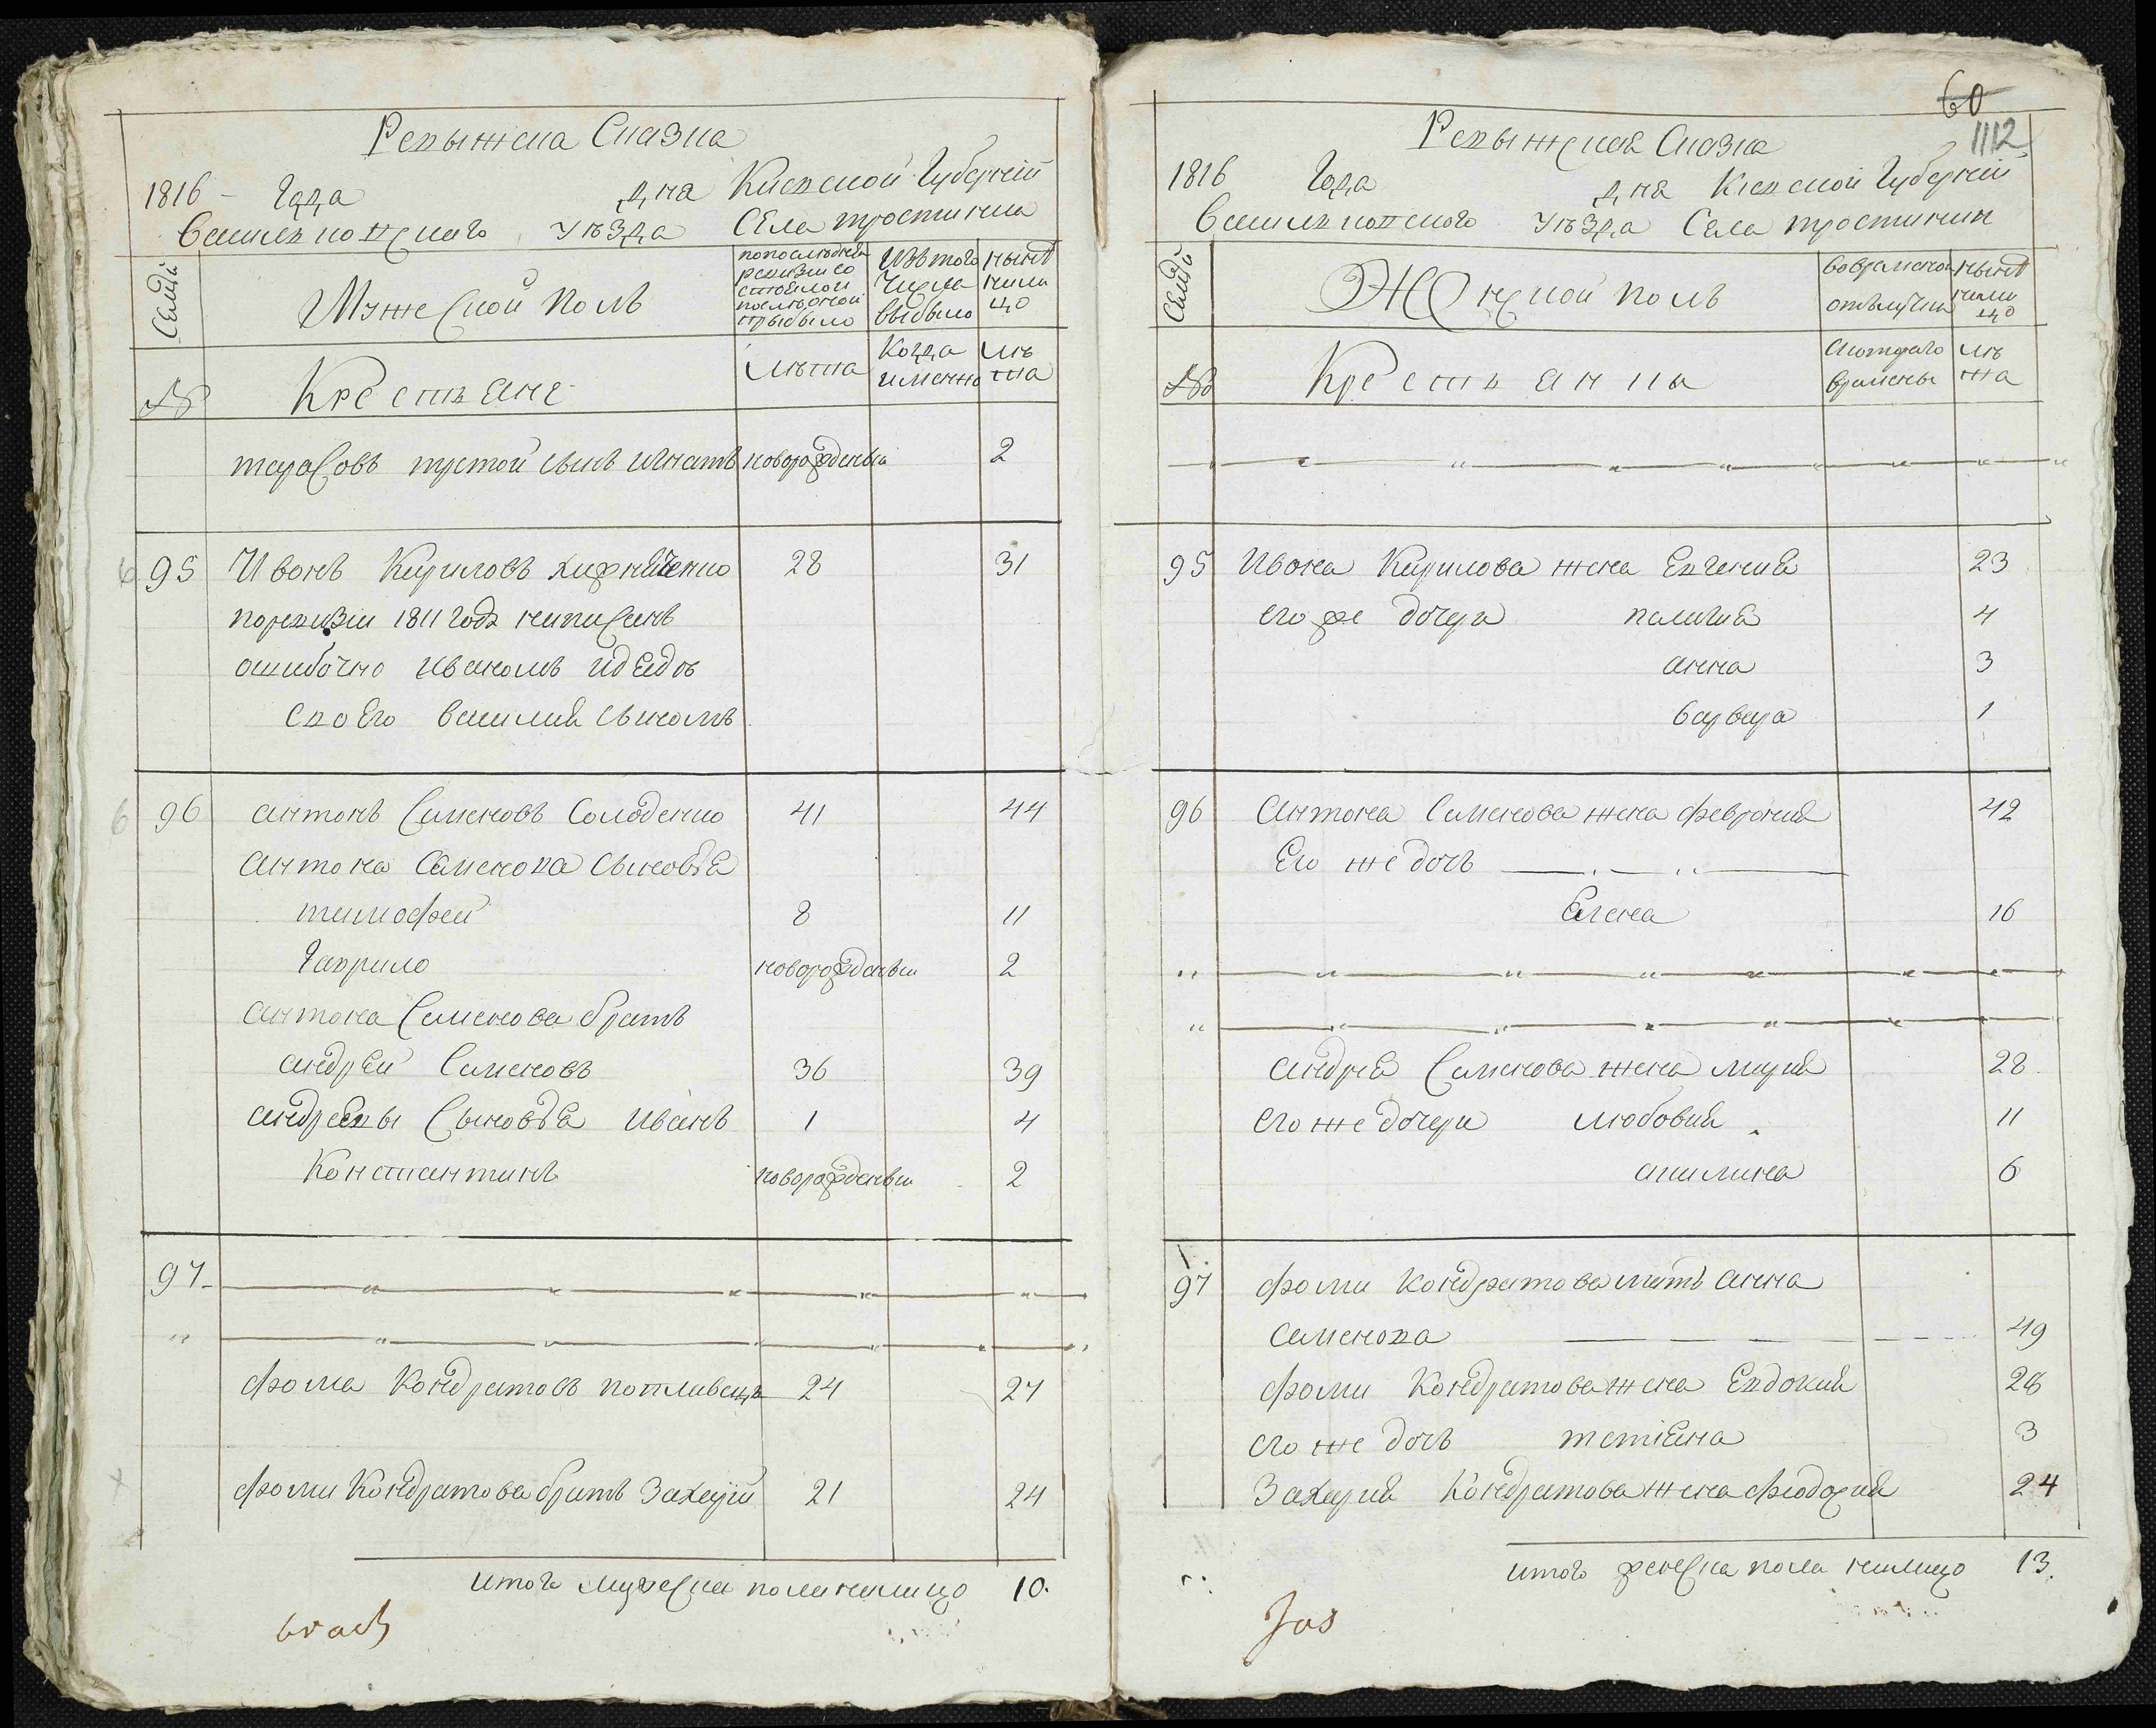 Ревыжска Сказка
1816 – Года дня Киевской Губерній
Васильковскаго Уѣзда Села тростинки
Семьи
Мужеской полъ
попоследней ревизіи со
стоялои после оной прыбыло
Изътого Числа выбыло
нынѣ нали цо
№
Крестьяне
лѣта
Когда именно
лѣ та
тарасовъ третой сынъ Игнатъ новорожденыи 2
95 Иванъ Кириловъ 28 31
поревизіи 1811 года написанъ
ошибочно иваномъ
своего василия сыномъ
96 антонъ Семеновъ Солоденко 41 44
антона Семенова сыновья
тимофей 8 11
Гаврило новорожденыи 2
антона Семенова братъ
андрей Семеновъ 36 39
андреевы Сыновья Иванъ 1 4
Константинъ новорожденыи 2
97
фома Кондратовъ поплавеца 24 27
фоми Кондратова братъ Захарій 21 24
итого мужеска пола налицо 10.
60
1112
Ревыжская Сказка
1816 Года дня Киевской Губерній
Васильковского Уѣзда Села тростинки
Семьи
Женской полъ
вовременой отълучки
нынѣ нали цо
№
Крестьянка
скотораго времены
лѣ та
95 Ивана Кирилова жена Евгения 23
его же дочери палагия 4
анна 3
варвара 1
96 Антона Семенова жена феврония 42
Его же дочь
Елена 16
андрея Семенова жена мария 28
его же дочери любовия 11
акилина 6
97 фоми Кондратова мать анна
семенова 49
фоми Кондратова жена Евдокия 28
его же дочь татіяна 3
Захария Кондратова жена феодория 24
итого женска пола налицо 13.